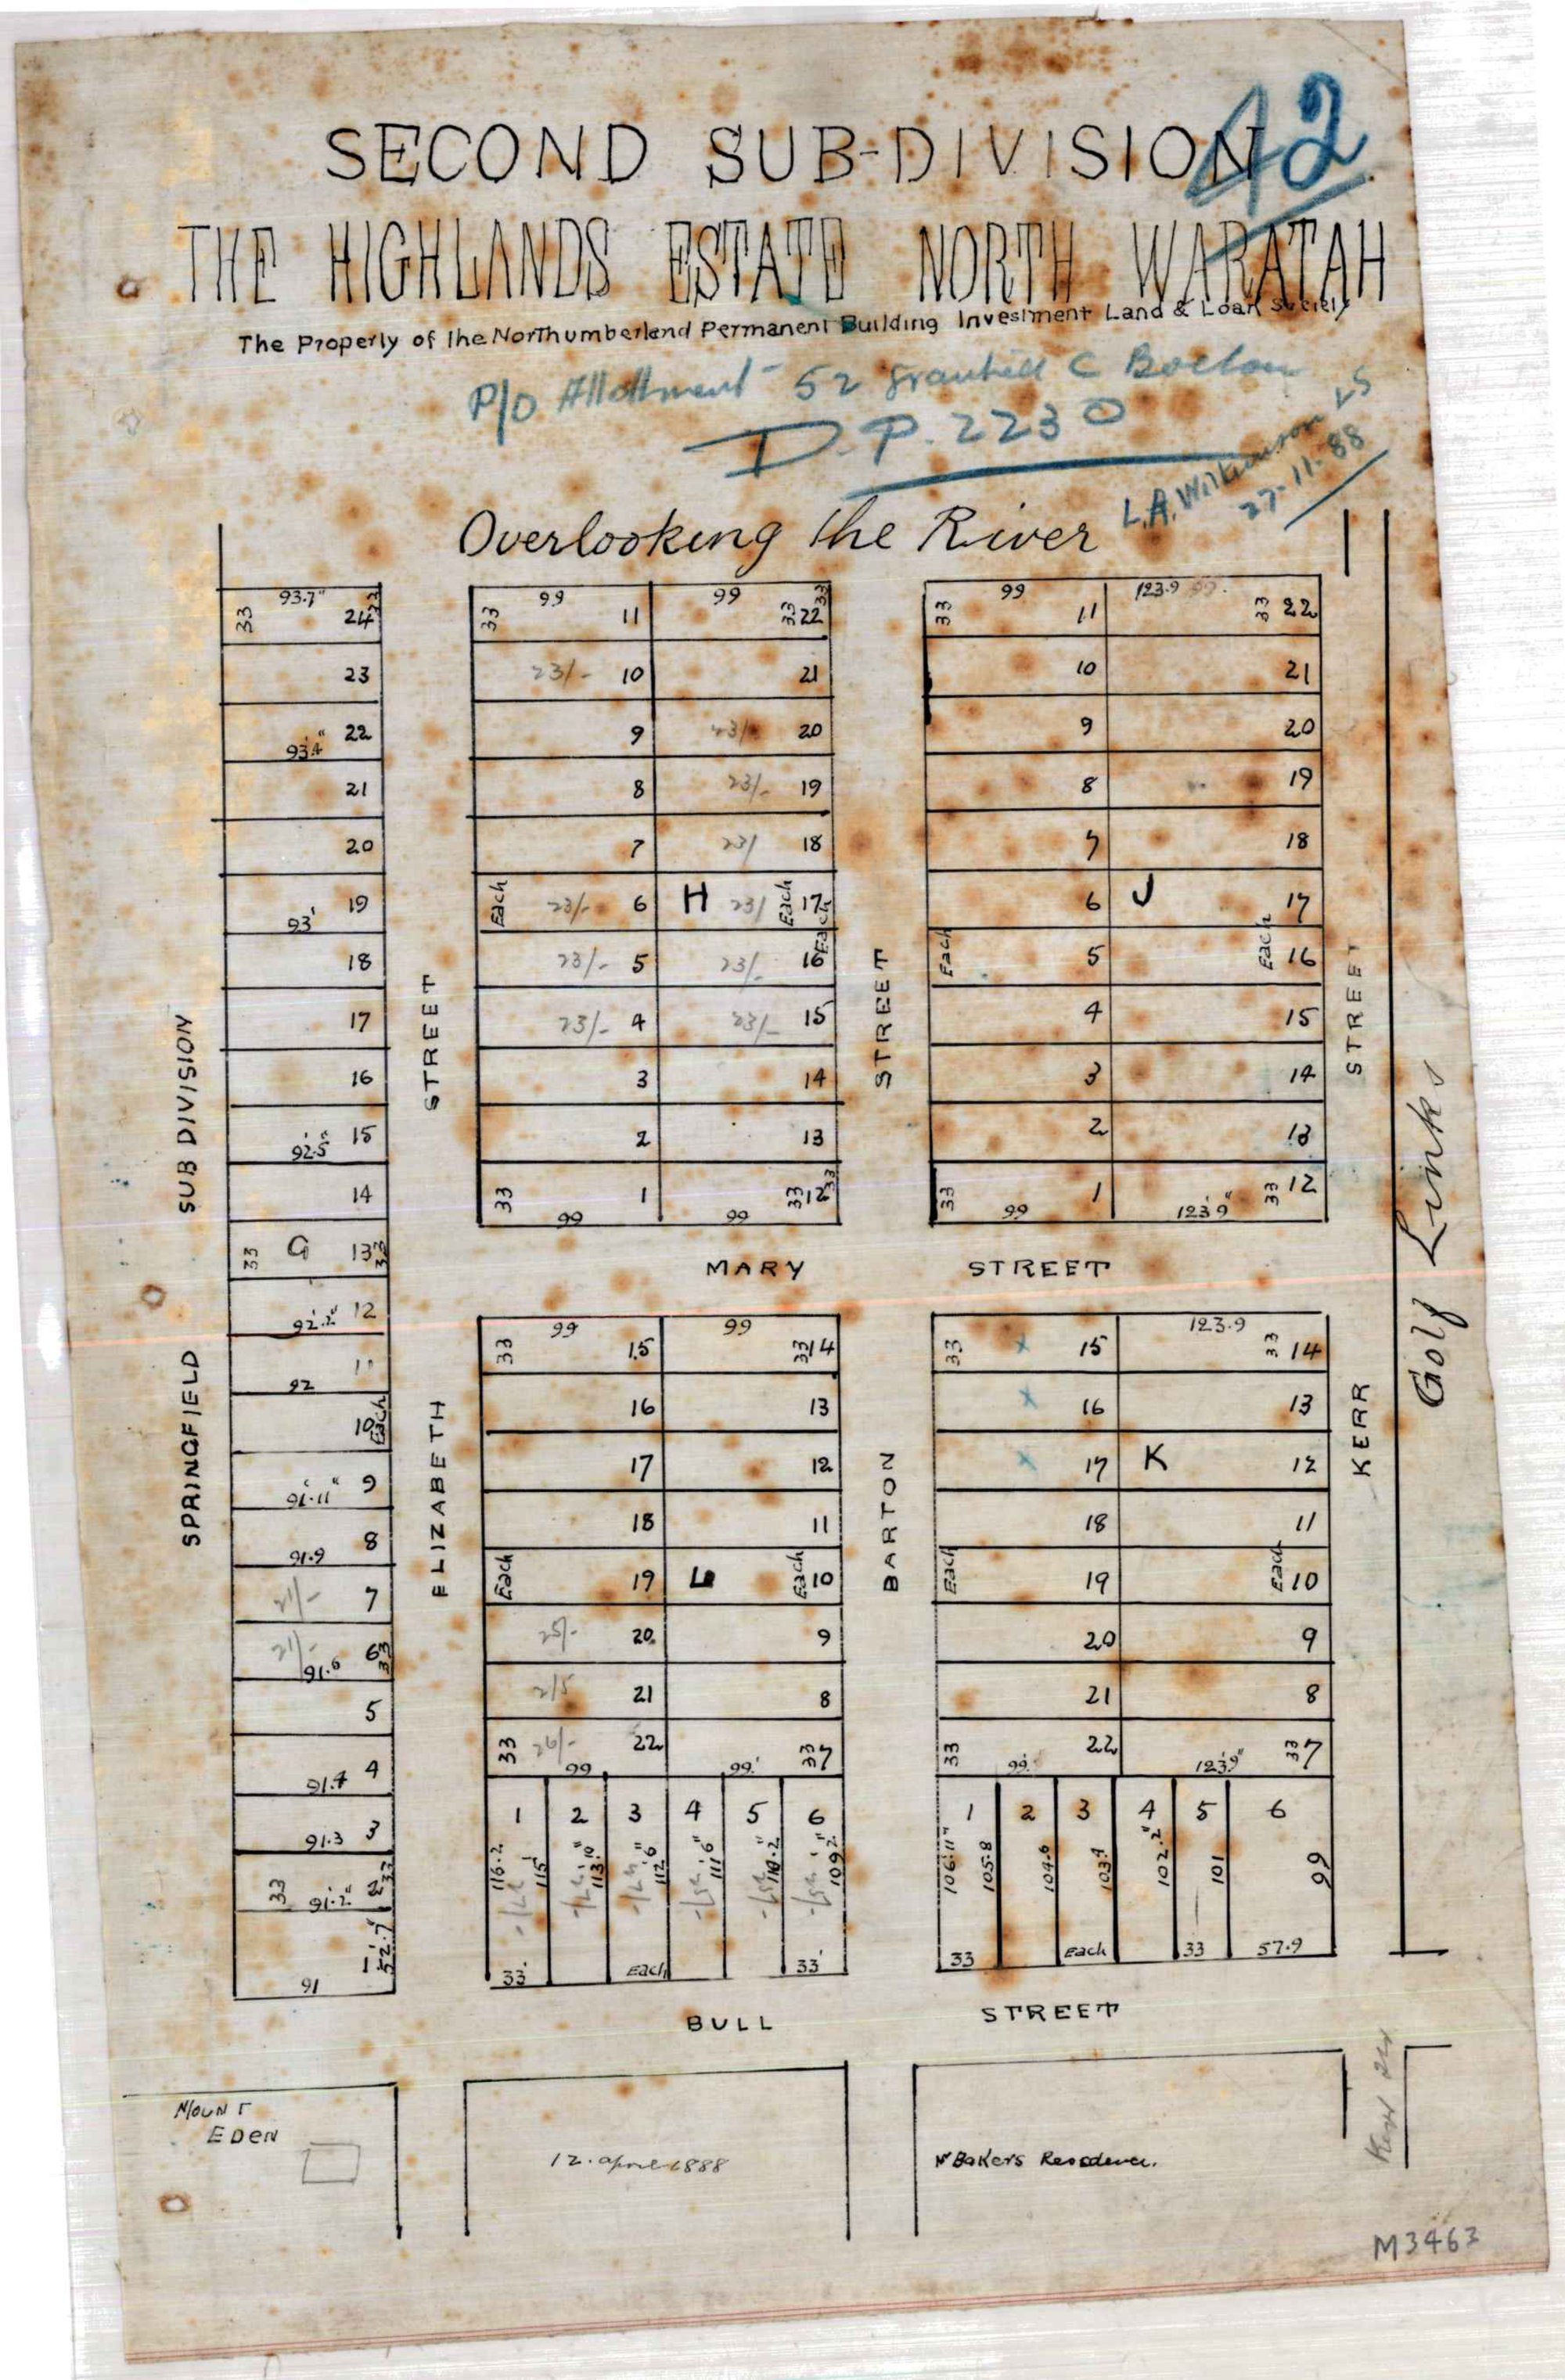 42
SECOND SUB-DIVISION
THE HIGHLANDS ESTATE NORTH WARATAH
The Property of the Northumberland Permanent Building Investment Land & Loan Society
P/O Allotment 52
D.P. 2230
L.A. Wilkinson LS
27-11-88
Overlooking the River
SUB DIVISION
SPRINGFIELD
93.7" 33 24 33
23
93.4" 22
21
20
93' 19
18
17
16
92.5" 15
14
33 G 13 33
92.2" 12
92 11
10 Each
91.11" 9
91.9 8
21/- 7
21/- 91.6 6 33
5
91.4 4
91.3 3
33 91.2" 2 33
91 1 52.7"
STREET
ELIZABETH
33 99 11
23/- 10
9
8
7
Each 23/- 6
23/- 5
23/- 4
3
2
33 99 1
99 33 22 33
21
23/- 20
23/- 19
23/ 18
H 23/ Each 17 Each
23/- 16
23/- 15
14
13
99 33 12 33
STREET
BARTON
33 99 11
10
9
8
7
6
Each 5
4
3
2
33 99 1
123.9 33 22
21
20
19
18
J 17
Each 16
15
14
13
123.9" 33 12
STREET
KERR
Golf Links
MARY STREET
33 99 15
16
17
18
Each 19
25/- 20
2/5 21
33 26/- 99 22
99 33 14
13
12
11
L Each 10
9
8
99' 33 7
1 2 3 4 5 6
116.2 115' 113.10" 112.6" 111.6" 110.2" 109.2"
33' Each 33'
33 15
16
17
18
Each 19
20
21
33 99' 22
123.9 33 14
13
K 12
11
Each 10
9
8
123.9" 33 7
1 2 3 4 5 6
106.11" 105.8 104.6 103.4 102.2" 101 99
33 Each 33 57.9
BULL STREET
MOUNT
EDEN
12. April 1888
Mr Bakers Residence.
Kerr
M3463